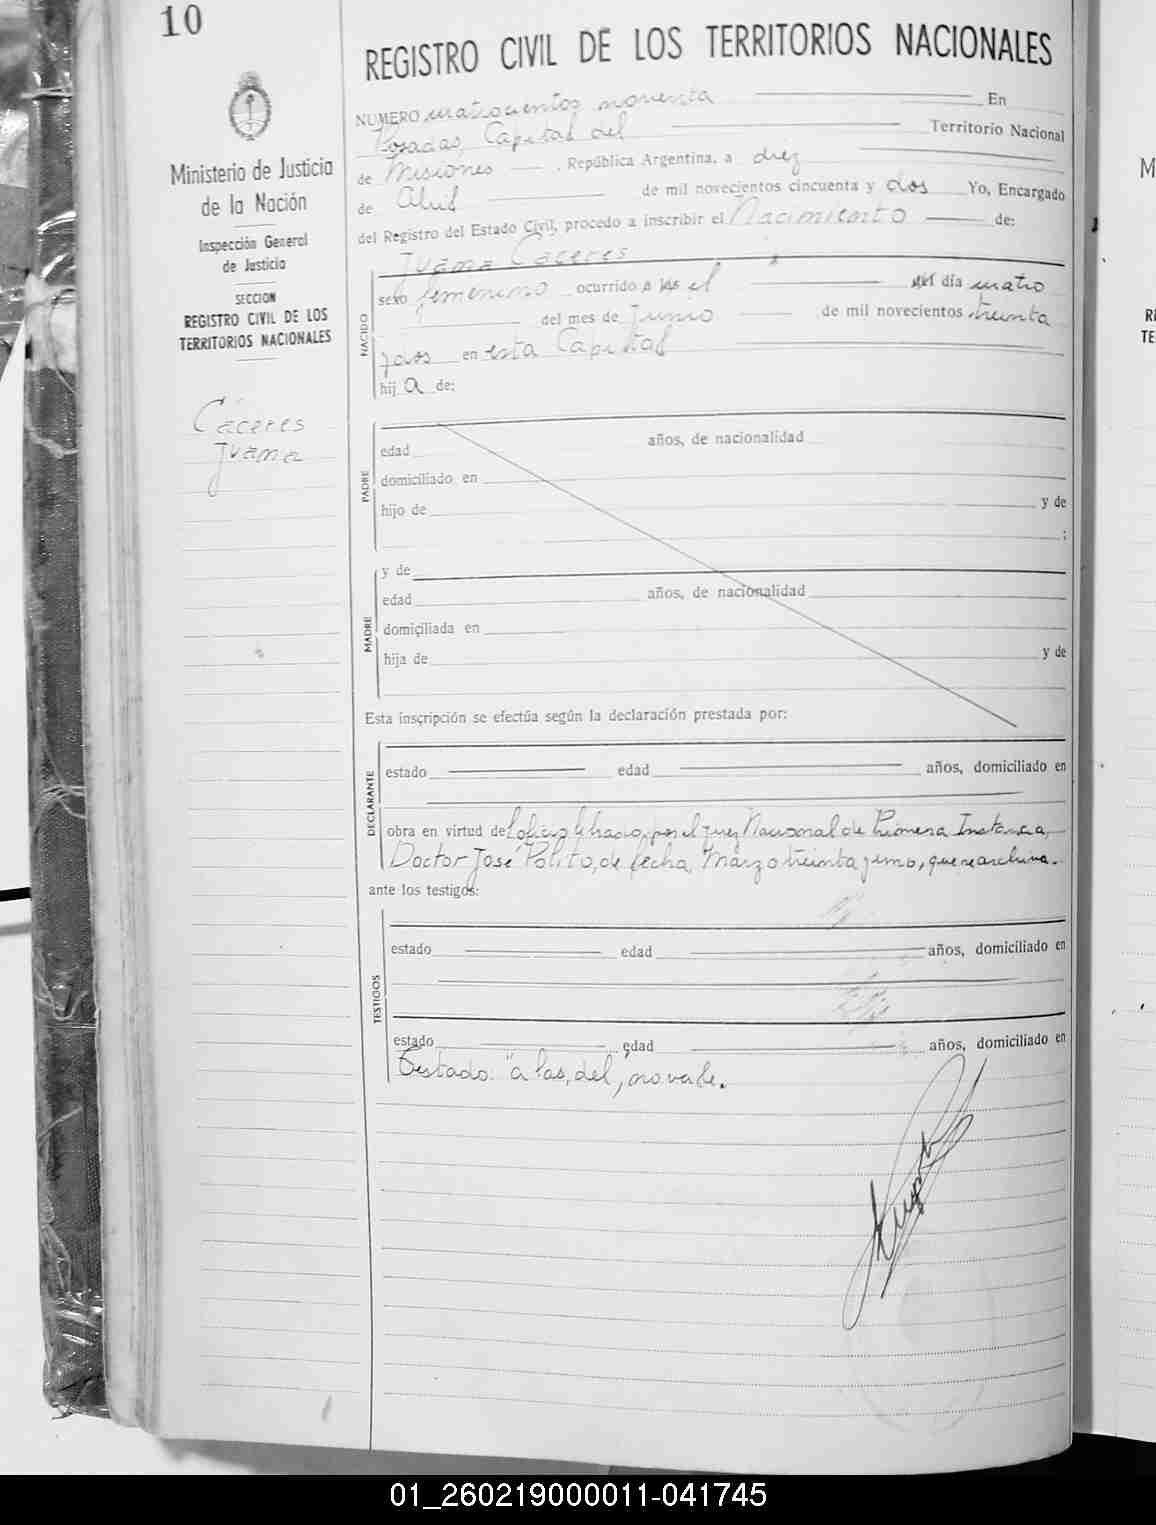 10
REGISTRO CIVIL DE LOS TERRITORIOS NACIONALES
Ministerio de Justicia
de la Nación
Inspección General
de Justicia
SECCION
REGISTRO CIVIL DE LOS
TERRITORIOS NACIONALES
Cáceres
Juana
NUMERO cuatrocientos noventa En
Posadas, Capital del Territorio Nacional
de Misiones , República Argentina, a diez
de Abril de mil novecientos cincuenta y dos Yo, Encargado
del Registro del Estado Civil, procedo a inscribir el Nacimiento de:
Juana Cáceres
NACIDO
sexo femenino ocurrido a las el del día cuatro
del mes de Junio de mil novecientos treinta
y dos en esta Capital
hij a de:
PADRE
edad años, de nacionalidad
domiciliado en
hijo de y de
;
MADRE
y de
edad años, de nacionalidad
domiciliada en
hija de y de
Esta inscripción se efectúa según la declaración prestada por:
DECLARANTE
estado edad años, domiciliado en
obra en virtud del oficio librado, por el Juez Nacional de Primera Instancia,
Doctor José Polito, de fecha, Marzo treinta y uno, que se archiva.
ante los testigos:
TESTIGOS
estado edad años, domiciliado en
estado edad años, domiciliado en
Testado: "a las, del", no vale.
M
RE
TE
01_260219000011-041745